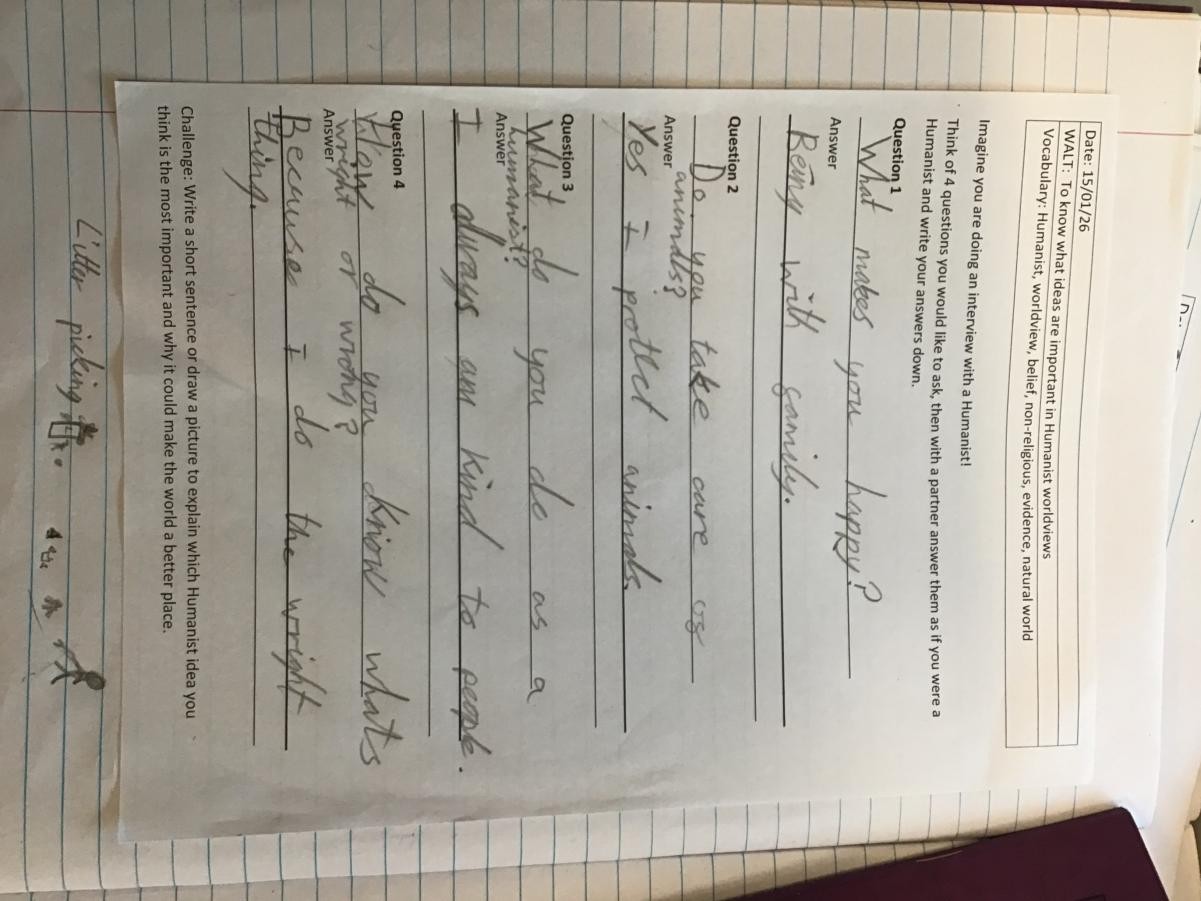 Date: 15/01/26
WALT: To know what ideas are important in Humanist worldviews
Vocabulary: Humanist, worldview, belief, non-religious, evidence, natural world
Imagine you are doing an interview with a Humanist!
Think of 4 questions you would like to ask, then with a partner answer them as if you were a
Humanist and write your answers down.
Question 1
What makes you happy?
Answer
Being with family.
Question 2
Do you take care of
animals?
Answer
Yes I protect animals.
Question 3
What do you do as a
humanist?
Answer
I always am kind to people.
Question 4
How do you know whats
wright or wrong?
Answer
Becuse I do the wright
thing.
Challenge: Write a short sentence or draw a picture to explain which Humanist idea you
think is the most important and why it could make the world a better place.
Litter picking